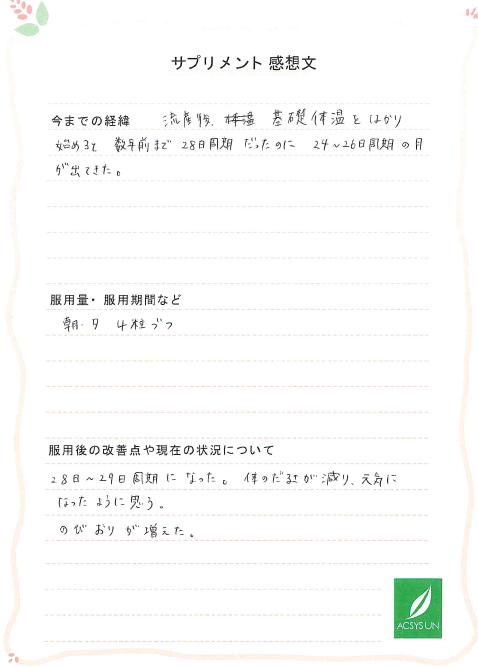 サプリメント 感想文
今までの経緯 流産後、基礎体温をはかり
始めると 数年前まで 28日周期 だったのに 24～26日周期 の月
が出てきた。
服用量・服用期間など
朝・夕 4粒づつ
服用後の改善点や現在の状況について
28日～29日周期 に なった。 体のだるさが 減り、元気に
なった ように 思う。
のび おり が 増えた。
ACSYSUN